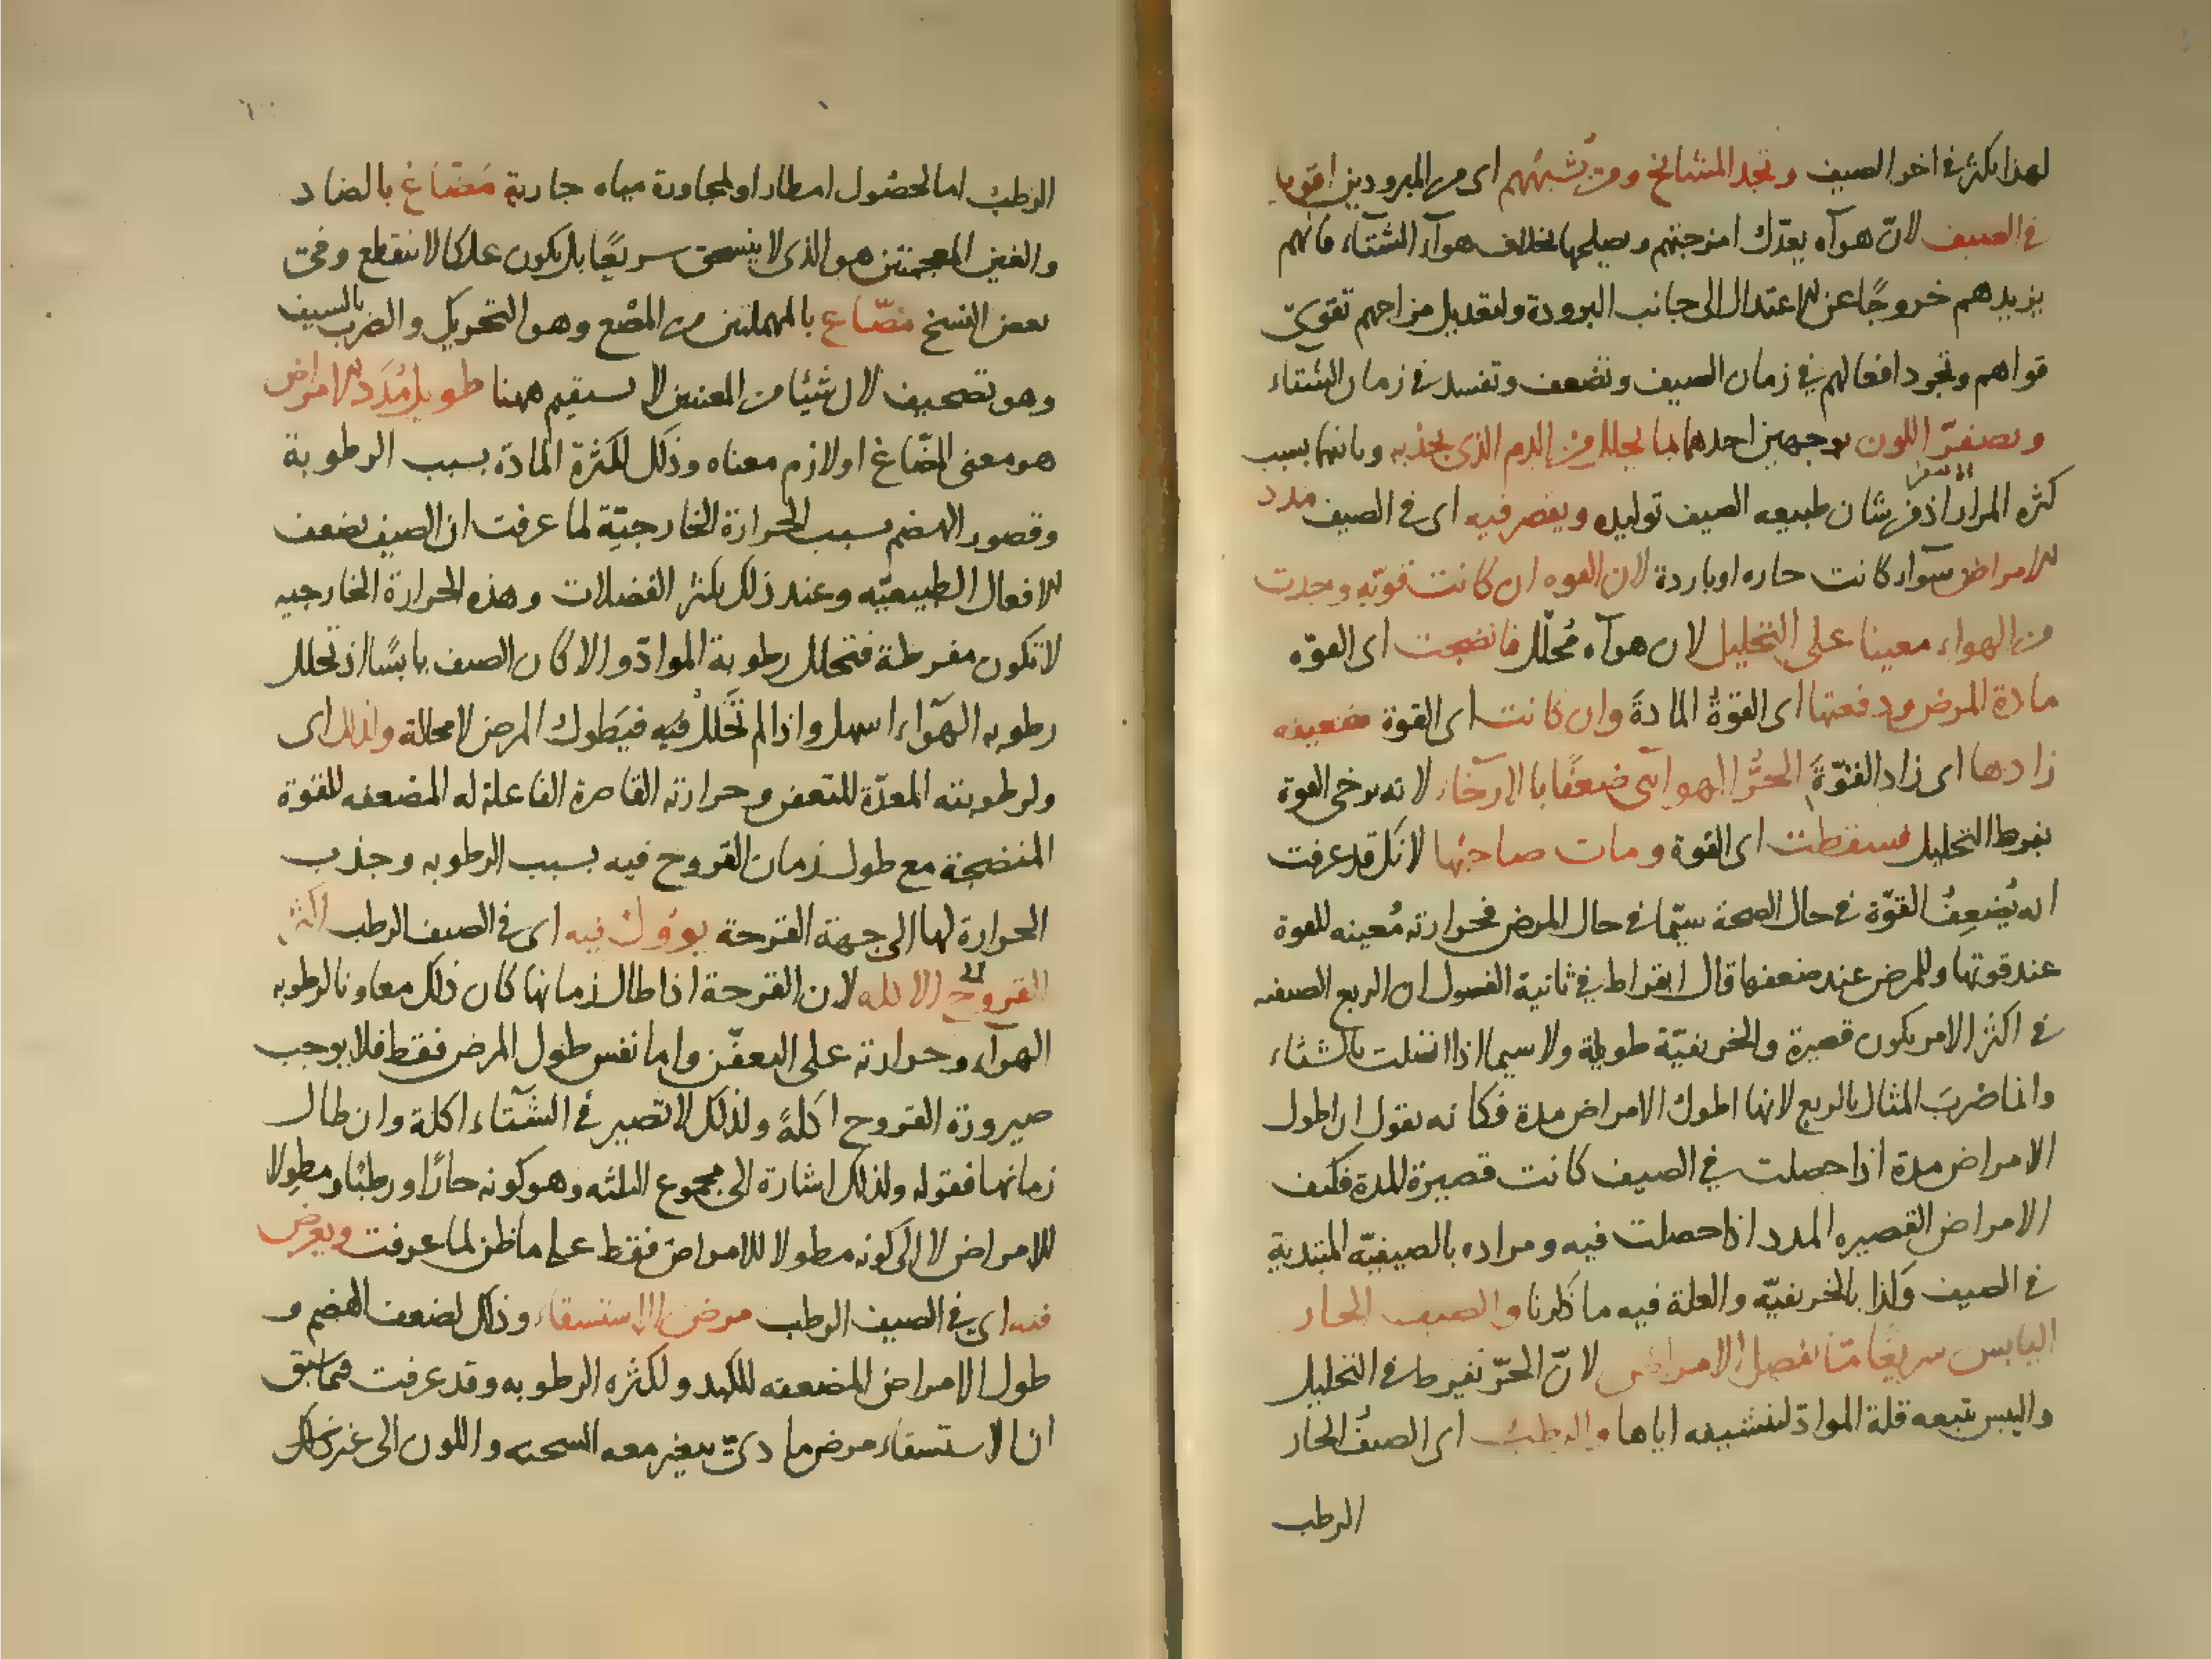 لهذا يكثر في اخر الصيف وتجد المشائخ ومن يشبههم اى من المبرودين اقويا
في الصيف لان هوآه يعدّل امزجتهم ويصلحها بخلاف هوآء الشتآء فانهم
يزيدهم خروجًا عن الاعتدال الى جانب البرودة ولتعديل مزاجهم تقوىّ
قواهم وتجود افعالهم في زمان الصيف وتضعف وتفسد في زمان الشتاء
ويصفرّ اللون بوجهين احدهما بما يحلل من الدم الذى يجذبه وثانيها بسبب
كثره المرار اذ من شان طبيعه الصيف توليده ويقصر فيه اى في الصيف مدد
الامراض سوآء كانت حاره او باردة لان القوه ان كانت قويّه وجدت
من الهواء معينا على التحليل لان هوآه مُحلّل فانضجت اى القوّه
مادة المرض ودفعتها اى القوةُ المادةَ وان كانت اى القوة ضعيفه
زادها اى زاد القوّةَ الحَرُّ الهوائى ضعفًا بالارخآء لانه يرخى القوة
بفرط التحليل فسقطت اى القوة ومات صاحبُها لانك قد عرفت
انه يُضعِفُ القوّة في حال الصحة سيّما في حال المرض فحرارته مُعينه للقوة
عند قوتها وللمرض عند ضعفها قال ابقراط في ثانية الفصول ان الربع الصيفيه
في اكثر الامر يكون قصيرة والخريفيّة طويلة ولا سيما اذا اتصلت بالشتاء
وانما ضَربَ المثال بالربع لانها اطول الامراض مدة فكانه يقول ان اطول
الامراض مدة اذا حصلت في الصيف كانت قصيرة المدة فكيف
الامراض القصيره المدد اذا حصلت فيه ومراده بالصيفيّه المبتدية
في الصيف وكذا بالخريفيّه والعلة فيه ما ذكرنا والصيف الحار
اليابس سريعًا ما تفصل الامراض لانّ الحَرّ يفرط في التحليل
واليبس يتبعه قلة الموادّ لتنشيفه اياها والرطبُ اى الصيفُ الحار
الرطب
الرطبُ اما لحصُول امطار او لمجاورة مياه جارية مَضّاغ بالضاد
والغين المعجمتين هو الذى لا ينسحق سريعًا بل يكون علكا لا ينقطع وفي
بعض النسخ مَصّاع بالمهملتين من المصْع وهو التحريك والضرب بالسيف
وهو تصحيف لان شيئا من المعنيين لا يستقيم ههنا طويل مُدَد الامراض
هو معنى المضّاغ او لازم معناه وذلك لكثرة المادّة بسبب الرطوبة
وقصور الهضم بسبب الحرارة الخارجيّة لما عرفت ان الصيف يضعف
الافعال الطبيعيّه وعند ذلك يكثر الفضلات وهذه الحرارة الخارجيه
لا تكون مفرطة فتحلل رطوبة الموادّ والا كان الصيف يابسًا اذ تحلل
رطوبه الهوآء اسهل واذا لم تُحَلّلْ فيه فيَطول المرض لا محالة ولذلك اى
ولرطوبته المعدّة للتعفن وحرارته القاصرة الفاعلة له المضعفه للقوة
المنضجة مع طول زمان القروح فيه بسبب الرطوبه وجذب
الحرارة لها الى جهة القرحة يوؤل فيه اى في الصيف الرطب اكثر
القروح الى الاكله لان القرحة اذا طال زمانها كان ذلك معاونا لرطوبه
الهوآء وحرارته على التعفّن واما نفس طول المرض فقط فلا يوجب
صيرورة القروح اكلةً ولذلك لا تصير في الشتآء اكلة وان طال
زمانها فقوله ولذلك اشارة الى مجموع الثلثه وهو كونه حارًا ورطبًا ومطولا
للامراض لا الى كونه مطولا للامراض فقط على ما ظن لما عرفت ويعرض
فيه اى في الصيف الرطب مرض الاستسقاء وذلك لضعف الهضم و
طول الامراض المضعفه للكبد ولكثره الرطوبه وقد عرفت فيما سبق
ان الاستسقاء مرض مادىّ يتغير معه السحنه واللون الى غير ذلك